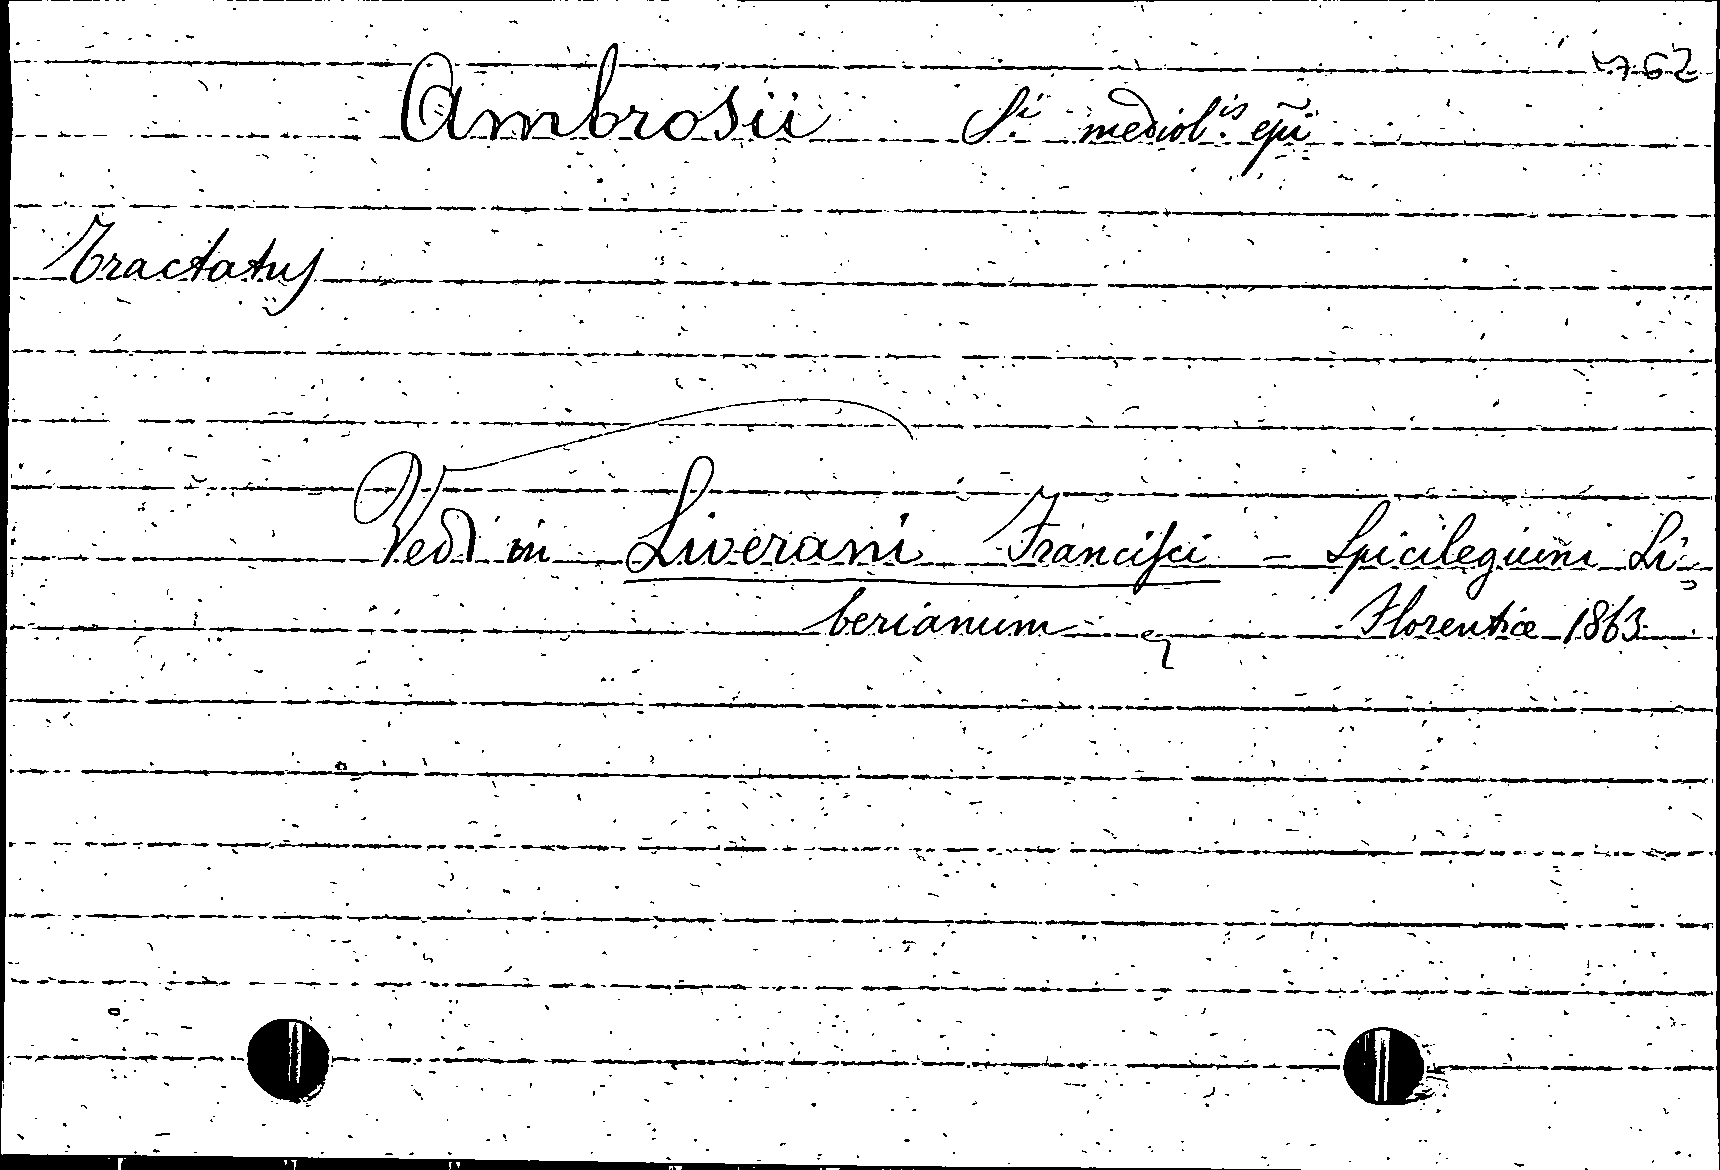 762
Ambrosii S.i mediol.is epĩ
Tractatus
Vedi in Liverani Francisci - Spicilegium Li-
berianum Florentiæ 1863